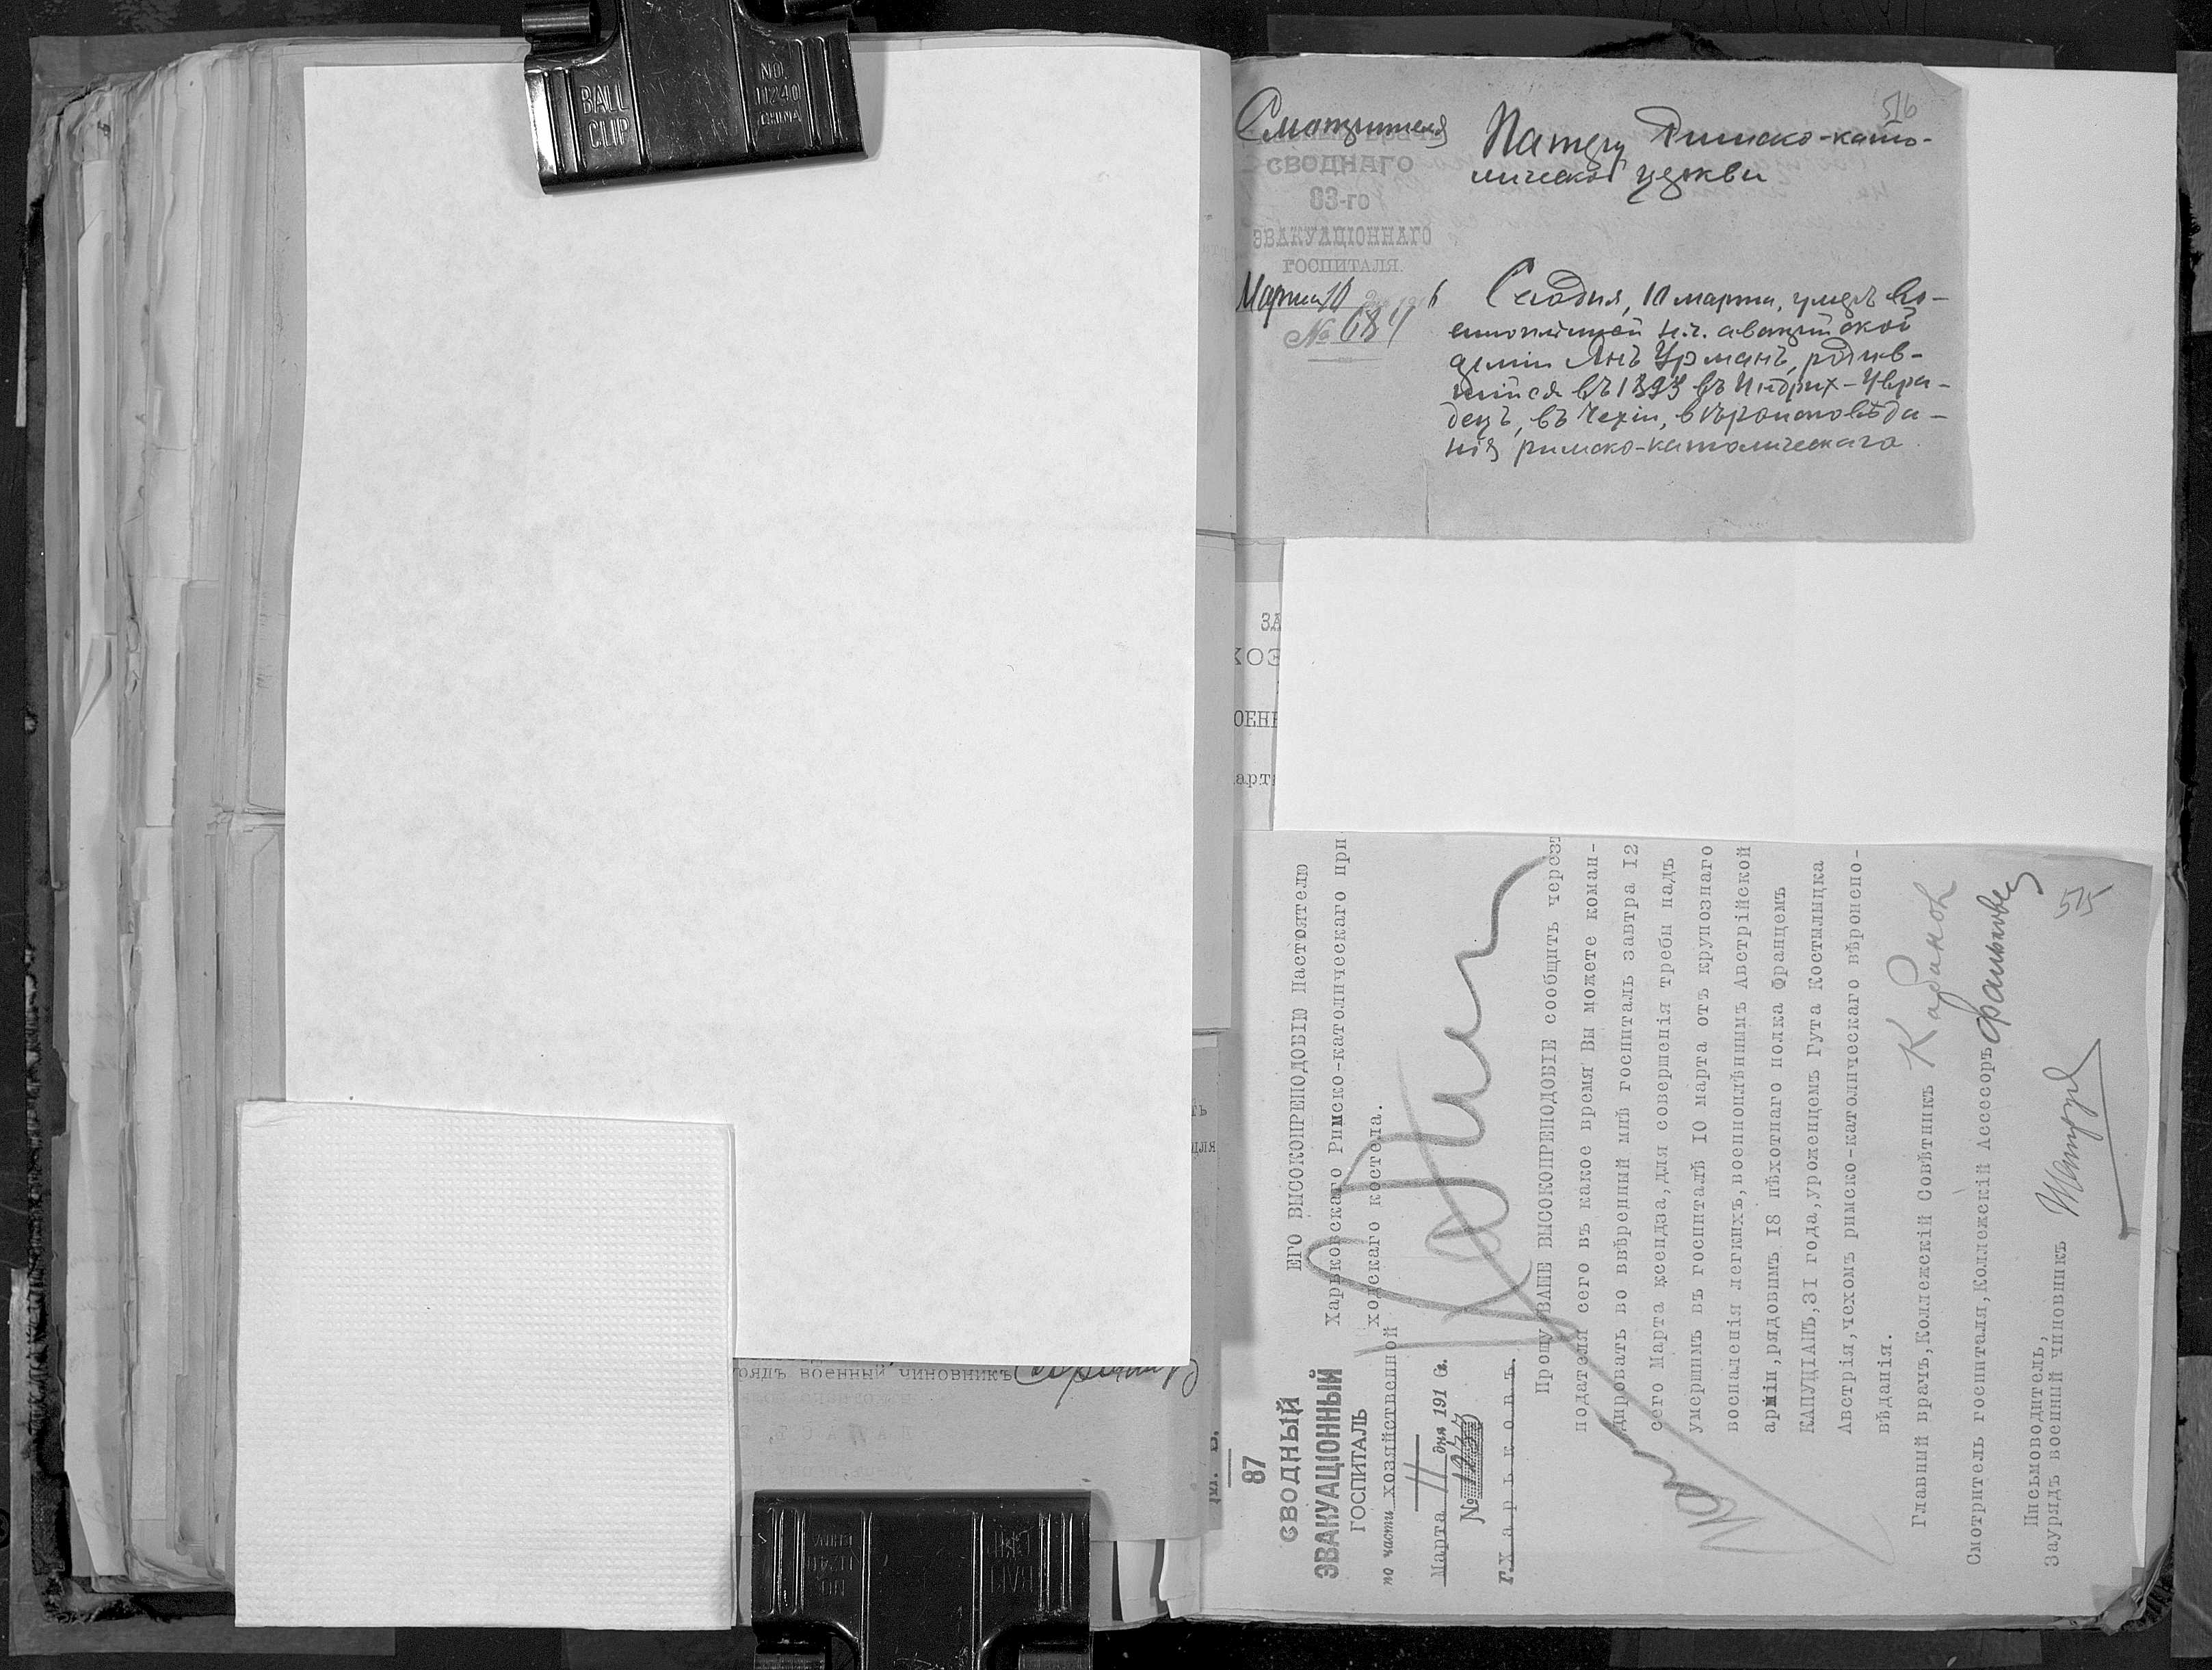 BALL
CLIP
NO.
11240
CHINA
516
Смотрителя
СВОДНАГО
63-го
ЭВАКУАЦІОННАГО
ГОСПИТАЛЯ.
Марта 10 дня 1916
№ 684
Патеру Римско-като-
лической церкви
Сегодня, 10 марта, умеръ во-
еннопленной н.ч. австрийской
арміи Янъ Урманъ, родив-
шійся въ 1893 въ Индрих-Увра-
децъ, въ Чехіи, вѣроисповѣда-
нія римско-католическаго
ЗА
ХОЗ
ОЕНН
арта
ть
для
рядъ военный чиновникъ
87
СВОДНЫЙ
ЭВАКУАЦІОННЫЙ
ГОСПИТАЛЬ
по части хозяйственной
Марта 11 дня 1916 г.
№ 1237
г. Харьковъ.
ЕГО ВЫСОКОПРЕПОДОБІЮ Настоятелю
Харьковскаго Римско-католическаго при
ходскаго костела.
Прошу ВАШЕ ВЫСОКОПРЕПОДОБІЕ сообщить черезъ
подателя сего въ какое время Вы можете коман-
дировать во ввѣренный мнѣ госпиталь завтра 12
сего Марта ксендза, для совершенія требы надъ
умершимъ въ госпиталѣ 10 марта отъ крупознаго
воспаленія легкихъ, военноплѣннымъ Австрійской
арміи, рядовымъ 18 пѣхотнаго полка Францемъ
КАПУЦІАНЪ, 31 года, уроженцемъ Гута Костылыцка
Австрія, чехомъ римско-католическаго вѣроиспо-
вѣданія.
Главный врачъ, Коллежскій Совѣтникъ Кабанов
Смотритель госпиталя, Коллежскій Ассесоръ
Письмоводитель,
Заурядъ военный чиновникъ
515